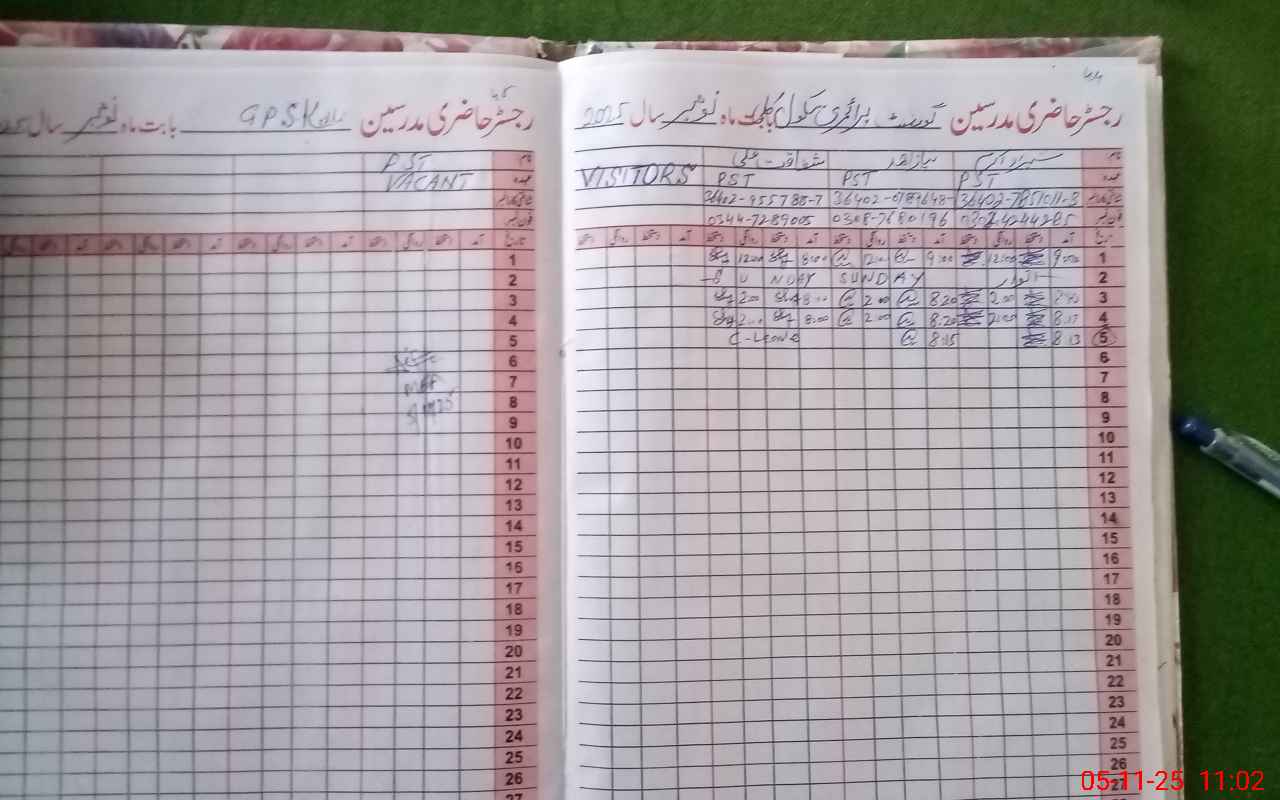 44
رجسٹر حاضری مدرسین گورنمنٹ پرائمری سکول بابت ماہ نومبر سال 2025
نام
عہدہ PST PST PST VISITORS
36402-7851011-3 36402-0789648- 36402-955788-7
فون نمبر 0308-7680196 0344-7289005
تاریخ آمد دستخط روانگی دستخط آمد دستخط روانگی دستخط آمد دستخط روانگی دستخط آمد دستخط روانگی دستخط
1 9:00 12:00 9:00 12:00 8:00 12:00
2 اتوار SUNDAY SUNDAY
3 2:00 8:20 2:00 8:00 2:00
4 8:17 2:00 8:20 2:00 8:00 2:00
5 8:13 8:15 C-Leave
6
7
8
9
10
11
12
13
14
15
16
17
18
19
20
21
22
23
24
25
26
27
45
رجسٹر حاضری مدرسین GPS بابت ماہ نومبر سال
نام PST
عہدہ VACANT
فون نمبر
تاریخ آمد دستخط روانگی دستخط آمد دستخط روانگی دستخط آمد دستخط روانگی دستخط آمد دستخط روانگی
1
2
3
4
5
6
7
8
9
10
11
12
13
14
15
16
17
18
19
20
21
22
23
24
25
26
27
05-11-25 11:02